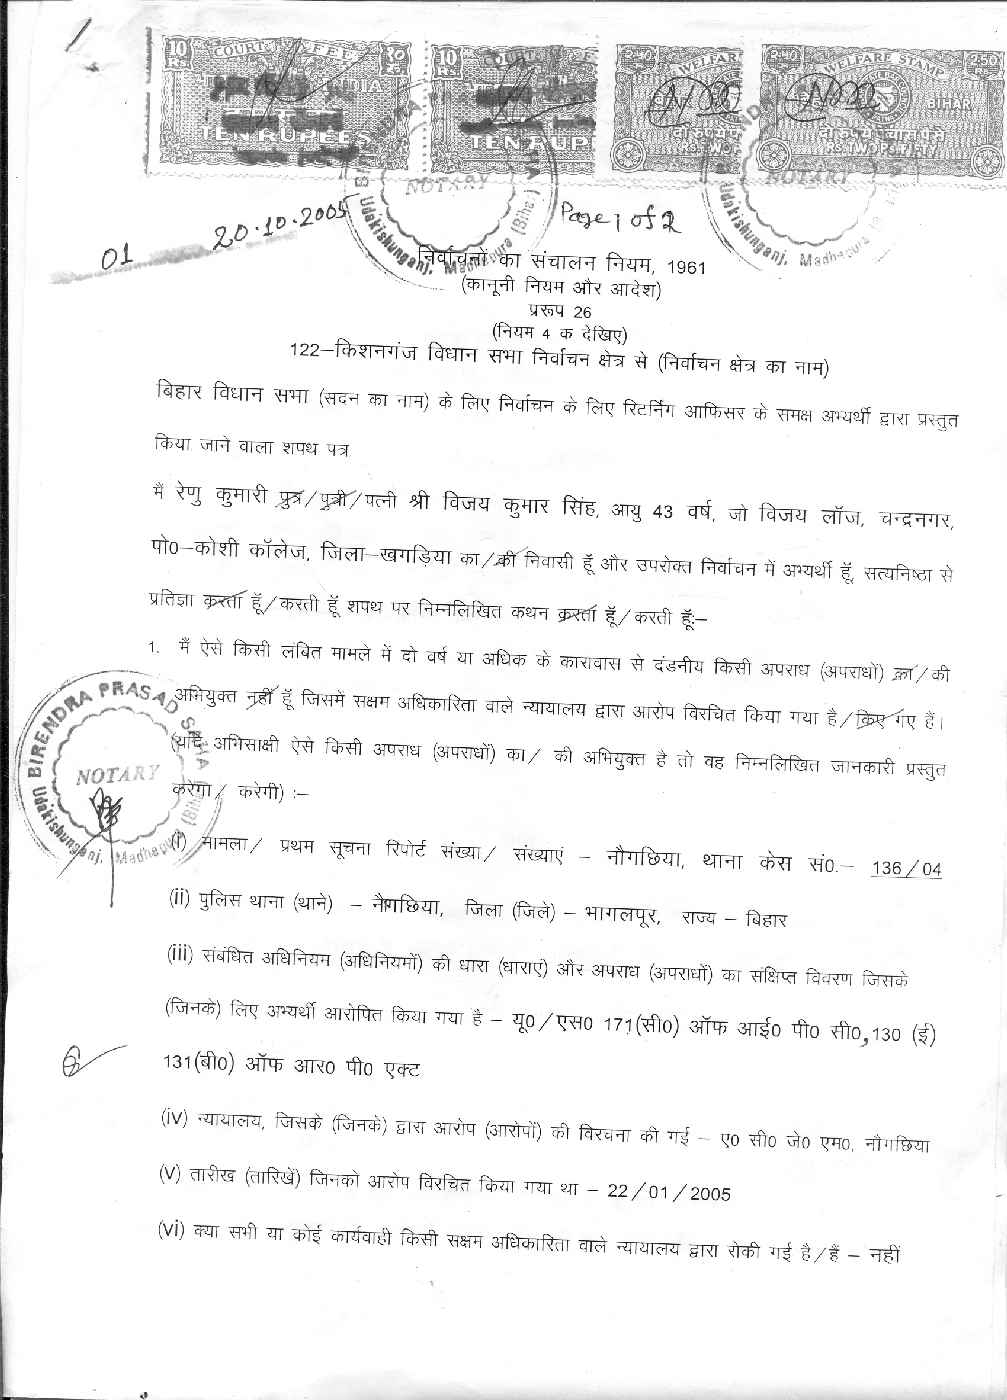 1
10 COURT FEE 10
Rs. INDIA रु.
TEN RUPEES
10 COURT FEE
Rs.
TEN RUP
2·50 WELFAR
दो रुपये प
RS. TWO
2·50 WELFARE STAMP 2·50
BIHAR
दो रुपये पचास पैसे
RS. TWO PS. FIFTY
NOTARY
Udakishunganj, Madhepura (Bihar)
NOTARY
Udakishunganj, Madhepura
01 20.10.2005 Page 1 of 2
निर्वाचनों का संचालन नियम, 1961
(कानूनी नियम और आदेश)
प्ररूप 26
(नियम 4 क देखिए)
122–किशनगंज विधान सभा निर्वाचन क्षेत्र से (निर्वाचन क्षेत्र का नाम)
बिहार विधान सभा (सदन का नाम) के लिए निर्वाचन के लिए रिटर्निंग आफिसर के समक्ष अभ्यर्थी द्वारा प्रस्तुत
किया जाने वाला शपथ पत्र
मैं रेणु कुमारी पुत्र/पुत्री/पत्नी श्री विजय कुमार सिंह, आयु 43 वर्ष, जो विजय लॉज, चन्द्रनगर,
पो0–कोशी कॉलेज, जिला–खगड़िया का/की निवासी हूँ और उपरोक्त निर्वाचन में अभ्यर्थी हूँ, सत्यनिष्ठा से
प्रतिज्ञा करता हूँ/करती हूँ शपथ पर निम्नलिखित कथन करता हूँ/करती हूँ:–
1. मैं ऐसे किसी लंबित मामले में दो वर्ष या अधिक के कारावास से दंडनीय किसी अपराध (अपराधों) का/की
अभियुक्त नहीं हूँ जिसमें सक्षम अधिकारिता वाले न्यायालय द्वारा आरोप विरचित किया गया है/किए गए हैं।
(यदि अभिसाक्षी ऐसे किसी अपराध (अपराधों) का/ की अभियुक्त है तो वह निम्नलिखित जानकारी प्रस्तुत
करेगा/ करेगी) :–
BIRENDRA PRASAD SAHA
NOTARY
Udakishunganj, Madhepura (Bihar)
(i) मामला/ प्रथम सूचना रिपोर्ट संख्या/ संख्याएं – नौगछिया, थाना केस सं0.– 136/04
(ii) पुलिस थाना (थाने) – नौगछिया, जिला (जिले) – भागलपूर, राज्य – बिहार
(iii) संबंधित अधिनियम (अधिनियमों) की धारा (धाराएं) और अपराध (अपराधों) का संक्षिप्त विवरण जिसके
(जिनके) लिए अभ्यर्थी आरोपित किया गया है – यू0/एस0 171(सी0) ऑफ आई0 पी0 सी0,130 (ई)
131(बी0) ऑफ आर0 पी0 एक्ट
(iv) न्यायालय, जिसके (जिनके) द्वारा आरोप (आरोपों) की विरचना की गई – ए0 सी0 जे0 एम0, नौगछिया
(v) तारीख (तारिखें) जिनको आरोप विरचित किया गया था – 22/01/2005
(vi) क्या सभी या कोई कार्यवाही किसी सक्षम अधिकारिता वाले न्यायालय द्वारा रोकी गई है/हैं – नहीं